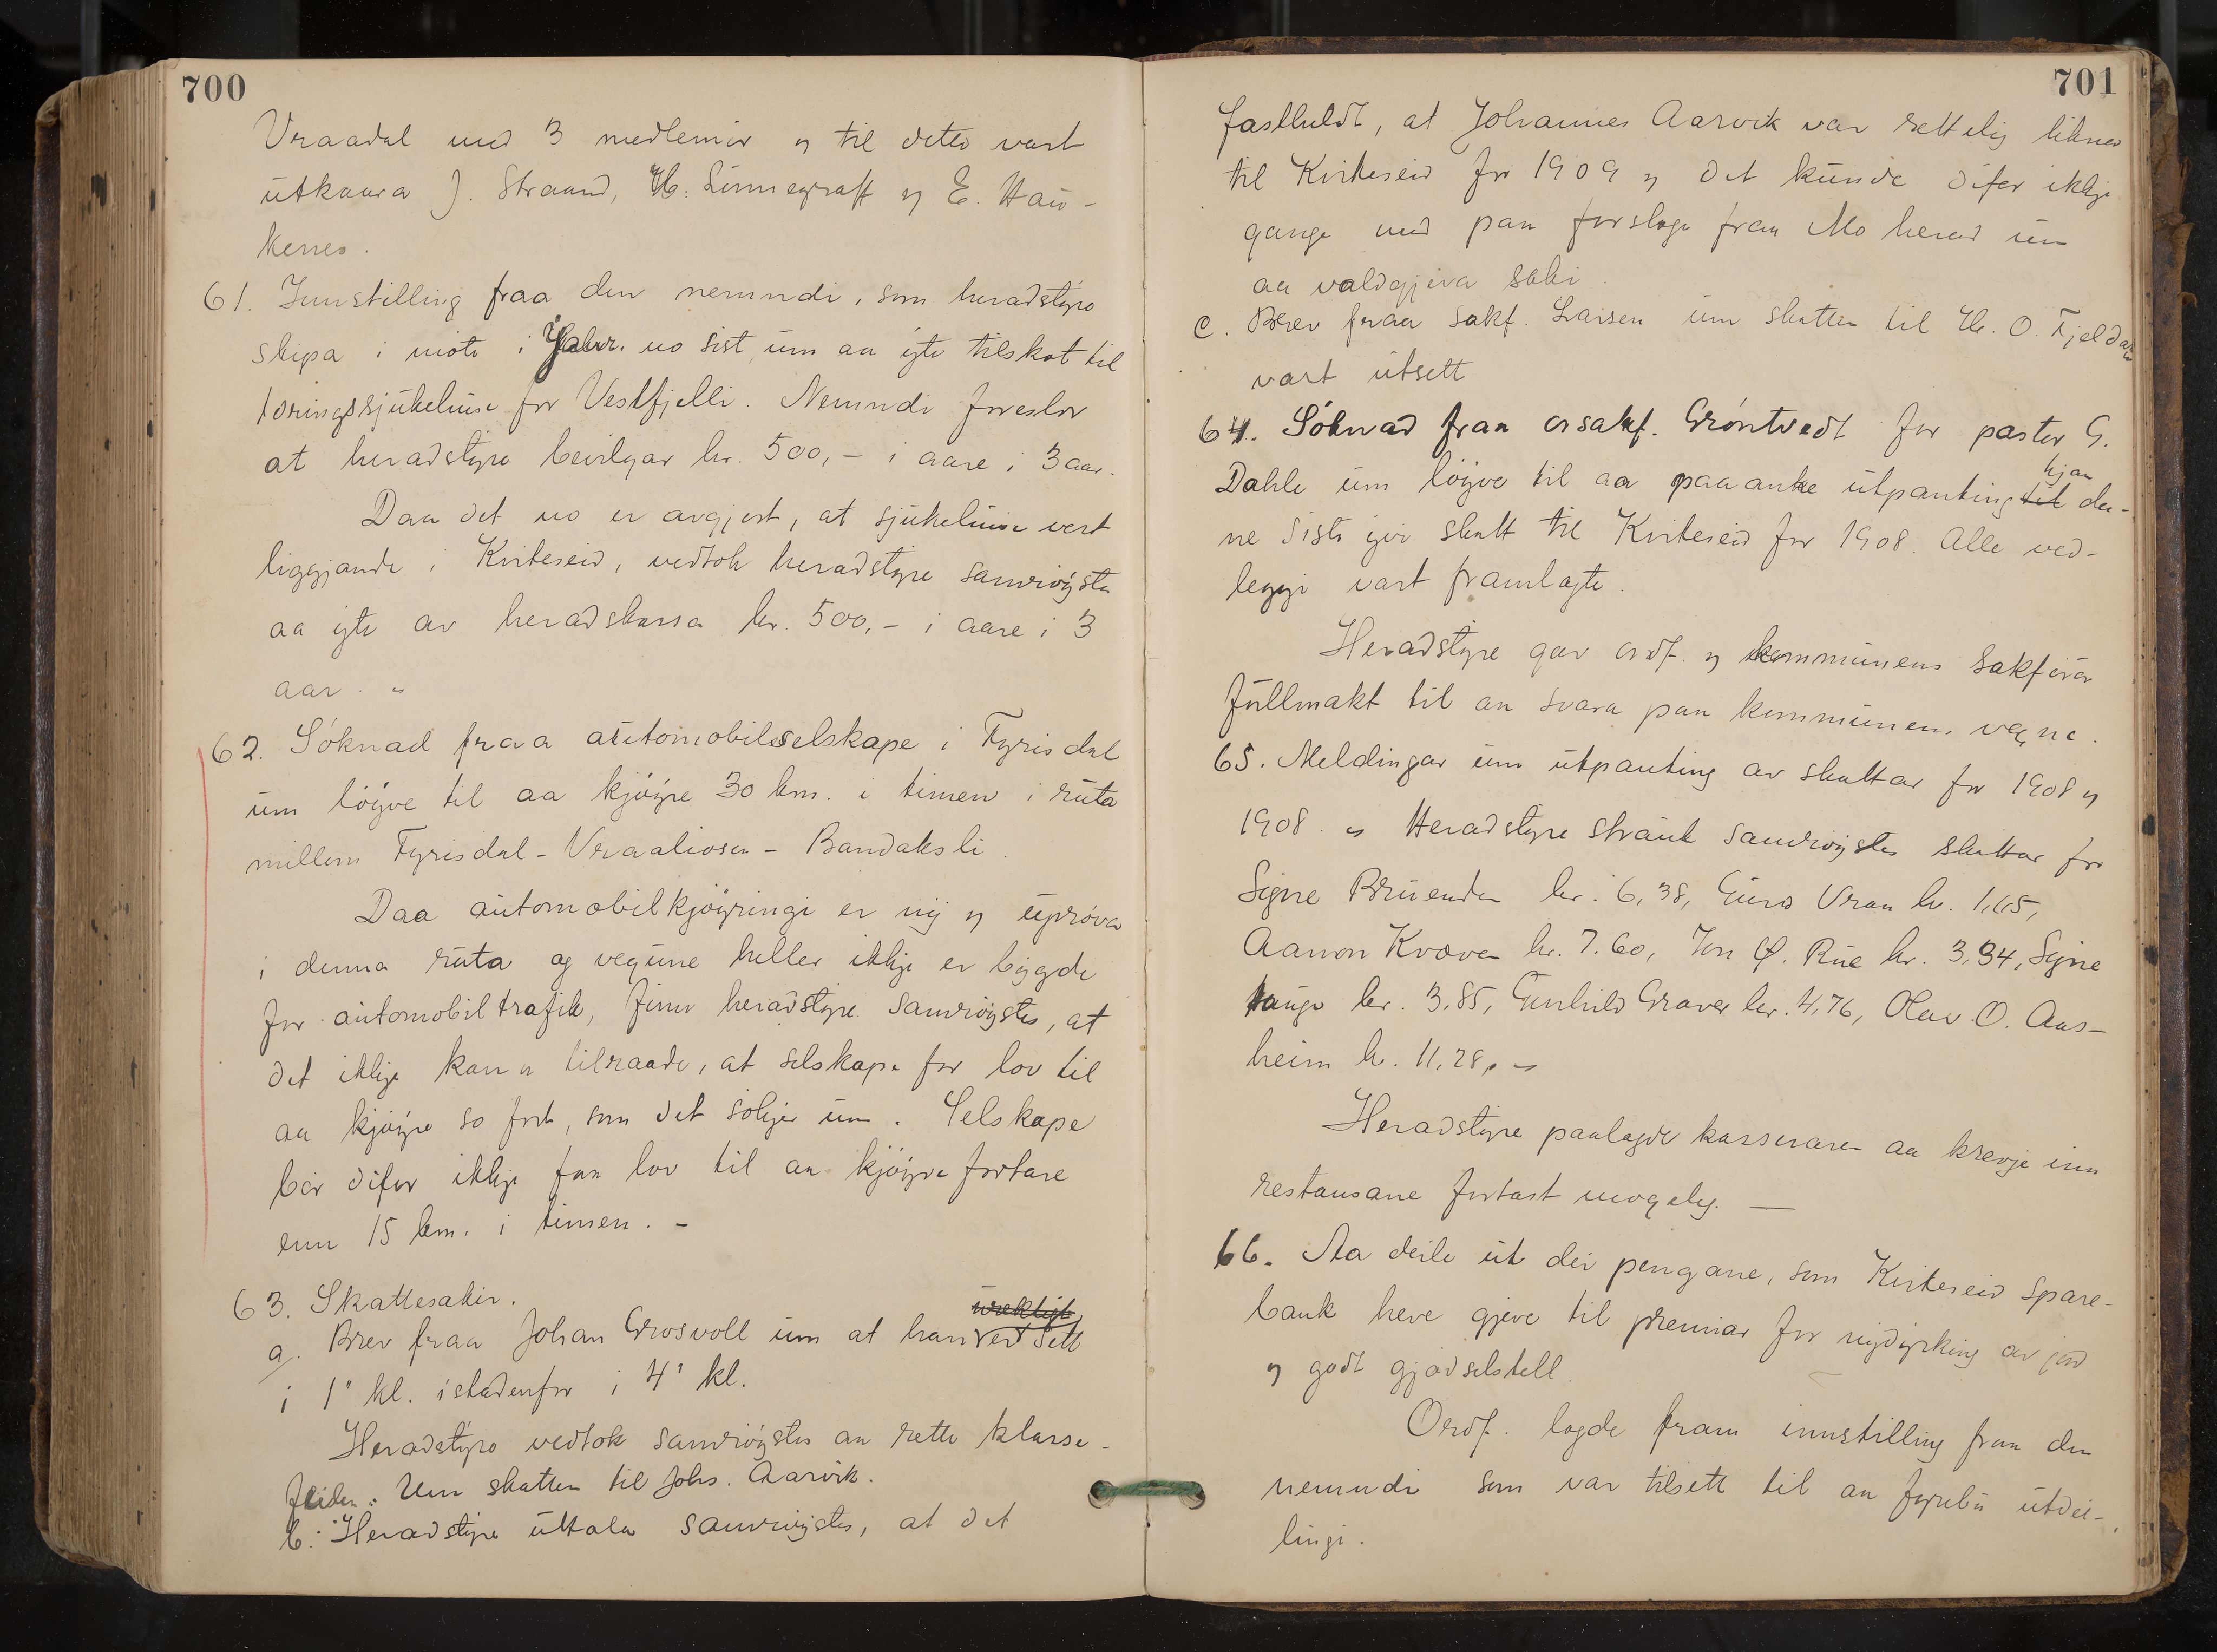 700
Vraadal med 3 medlemir og til dette vart
utkaara J. Straand, H. Sinnegraff og E. Hau-
kenes.
61. Innstilling fraa den nemndi, som heradstyre
skipa i møte i Febr. no sist um aa yte tilskot til
tæringssjukehuse for Vestfjelli. Nemndi foreslær
at heradstyre beivlgar kr. 500,- i aare i 3 aar.
Daa det no er avgjort, at sjukehuse vert
liggjande i Kviteseid, vedtok heradstyre samrøystes
aa yte av heradskassa kr. 500,- i aare i 3
aar. -
62. Søknad fraa automobilselskape i Fyrisdal
um løyve til aa kjøyre 30 km. i timen i ruta
millom Fyrisdal - Vraaliosen - Bandaksli.
Daa automobilkjøyringi er ny og uprøva
i denna ruta og vegune heller ikkje er bygde
for automobiltrafik, finn heradstyre samrøystes, at
det ikkje kann tilraade, at selskape fær lov til
aa kjøyre so fort, som det søkjer um. Selskape
bør difor ikkje faa lov til aa kjøyre fortare
enn 15 km. i timen. -
63. Skattesakir.
a. Brev fraa Johan Grosvoll um at han vert sett
i 1' kl. istadenfor i 4' kl.
Heradstyre vedtok samrøystes aa rette klasse-
feilen. Um skatten til Johs. Aarvik.
b. Heradstyre uttala samrøystes, at det
701
fastheldt, at Johannes Aarvik var rettelig likna
til Kviteseid for 1909 og det kunde difor ikkje
gange med paa forslage fraa Mo herad um
aa valdgjeva saki.
c. Brev fraa sakf. Larsen um skatten til H. O. Fjeld
vart utsett
64. Søknad fraa orsakf. Grøntvedt for pastor G.
Dahle um løyve til aa paaanke utpanting til hjaa den-
ne siste for skatt til Kviteseid for 1908. Alle ved-
leggi vart framlagte.
Heradstyre gav ordf. og kommunens sakførar
fullmakt til aa svara paa kommunens vegne.
65. Meldingar um utpanting av skattar for 1908 og
1908. - Heradstyre strauk samrøystes skattar for
Signe Bruenden kr. 6,38, Guro Vraa kr. 1,65,
Aanon Kvæven kr. 7.60, Jon Ø. Rue kr. 3,94, Signe
Haugo kr. 3,85, Gunhild Graver kr. 4,76, Olav O. Aas-
heim kr. 11,28. -
Heradstyre paalagde kasseraren aa krevje inn
restansane fortast mogeleg. -
66. Aa deile ut dei pengane, som Kviteseid spare-
bank heve gjeve til premiar for nydyrking av jord
og godt gjødselstell.
Ordf. lagde fram innstilling fraa den
nemndi som var tilsett til aa fyrebu utdei-
lingi.